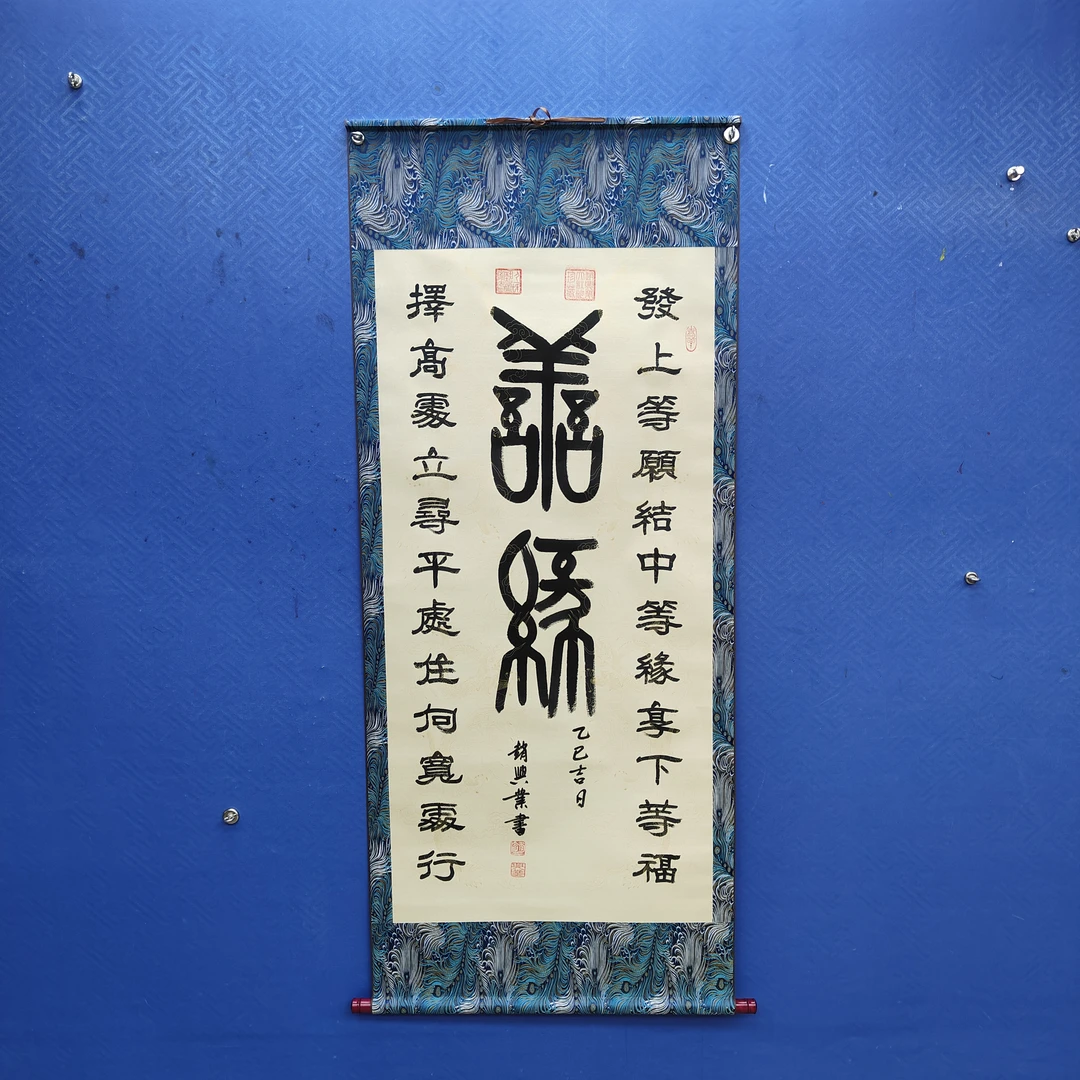 發上等願結中等緣享下等福
譱緣
乙巳吉日
趙興業書
擇高處立尋平處住向寬處行